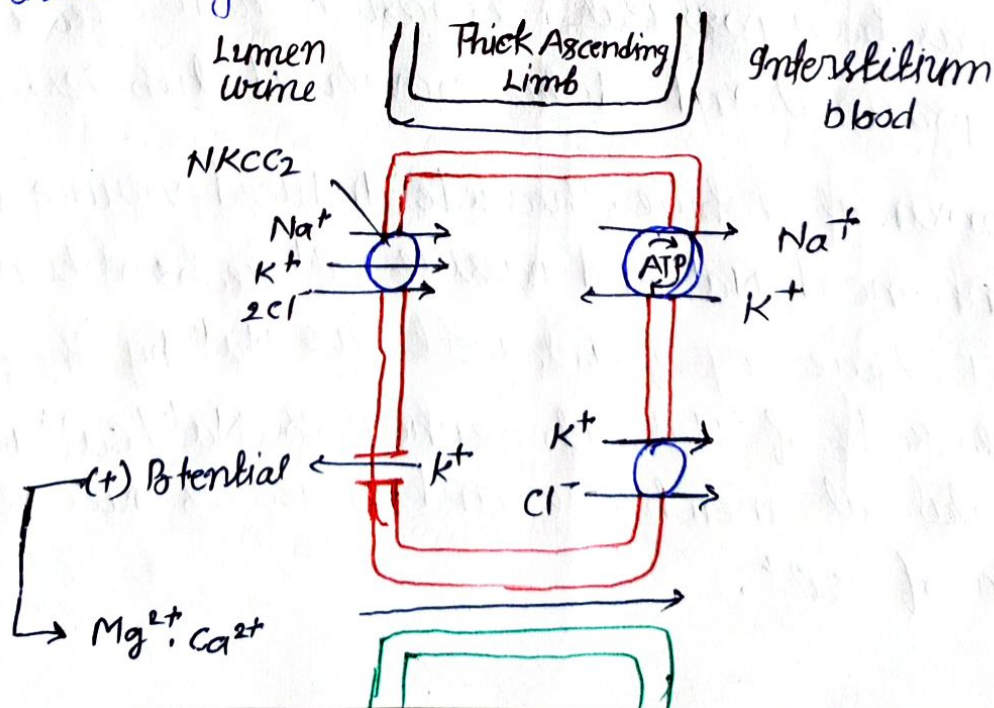 Lumen
urine
Thick Ascending
Limb
Interstitium
blood
NKCC₂
Na⁺
K⁺
2Cl⁻
ATP
Na⁺
K⁺
K⁺
Cl⁻
(+) Potential
K⁺
Mg²⁺. Ca²⁺